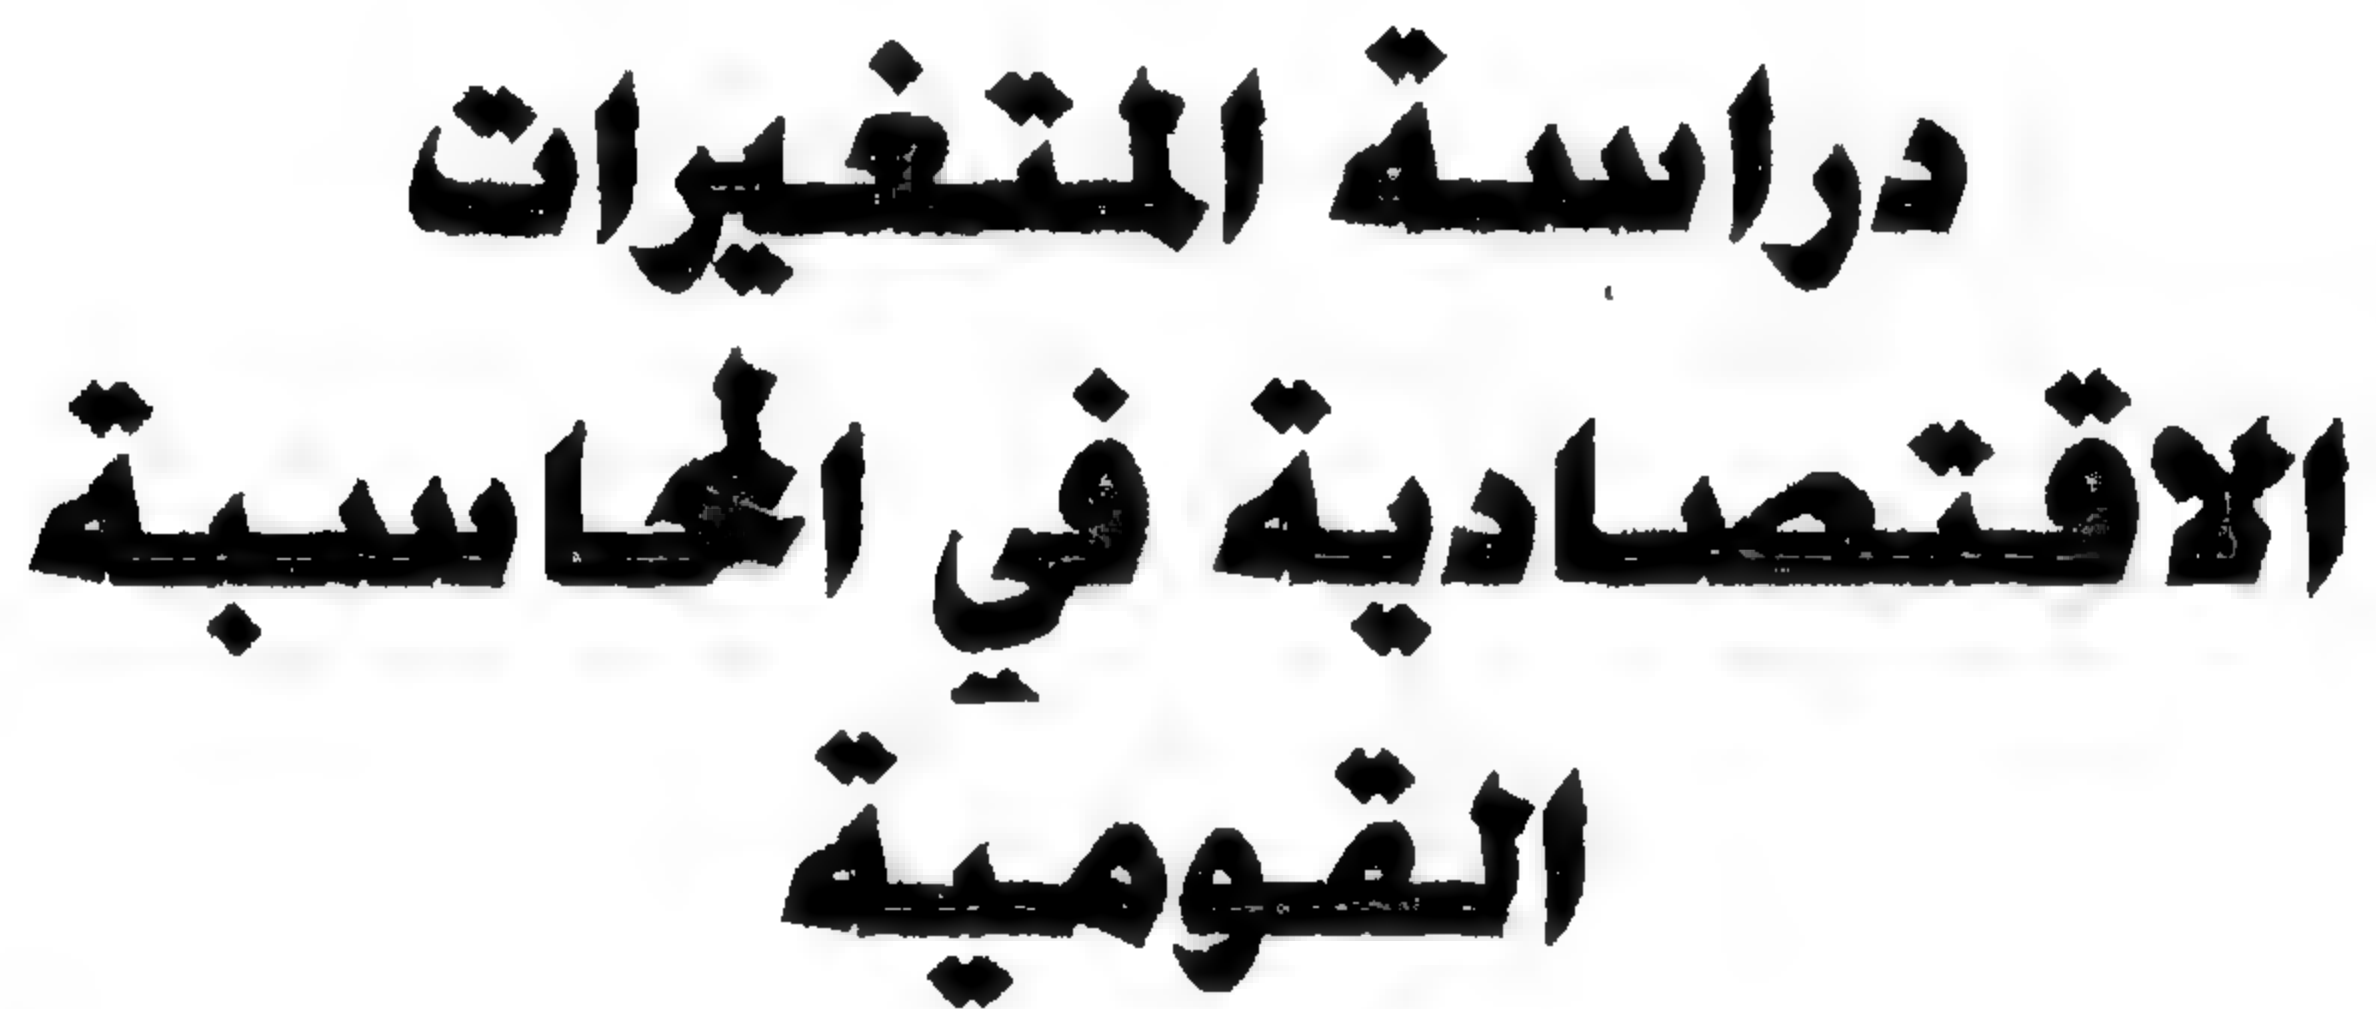 دراسة المتغيرات
الاقتصادية في المحاسبة
القومية